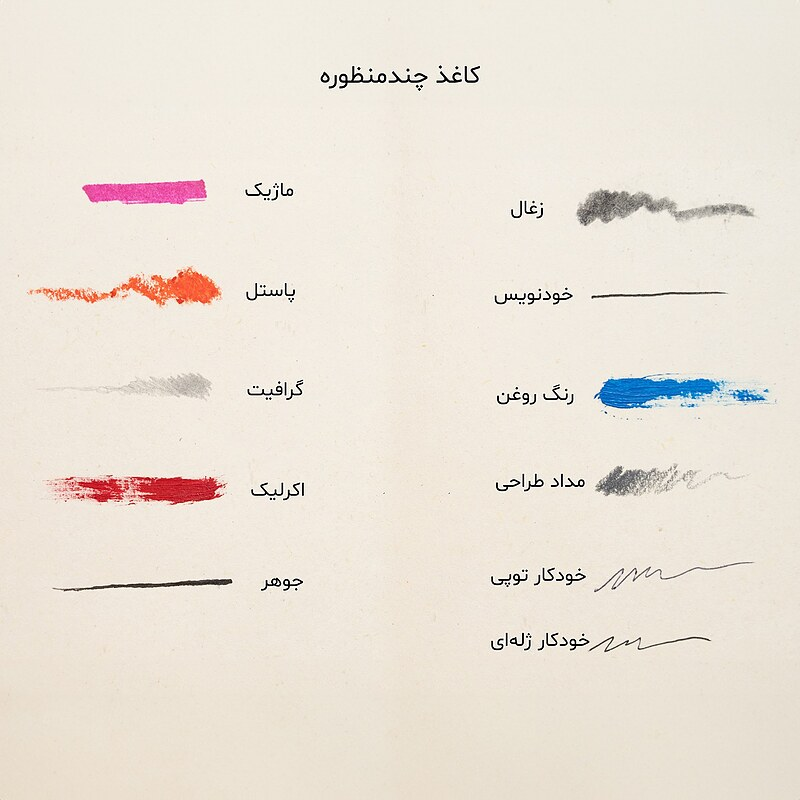 کاغذ چندمنظوره
زغال
خودنویس
رنگ روغن
مداد طراحی
خودکار توپی
خودکار ژله‌ای
ماژیک
پاستل
گرافیت
اکرلیک
جوهر